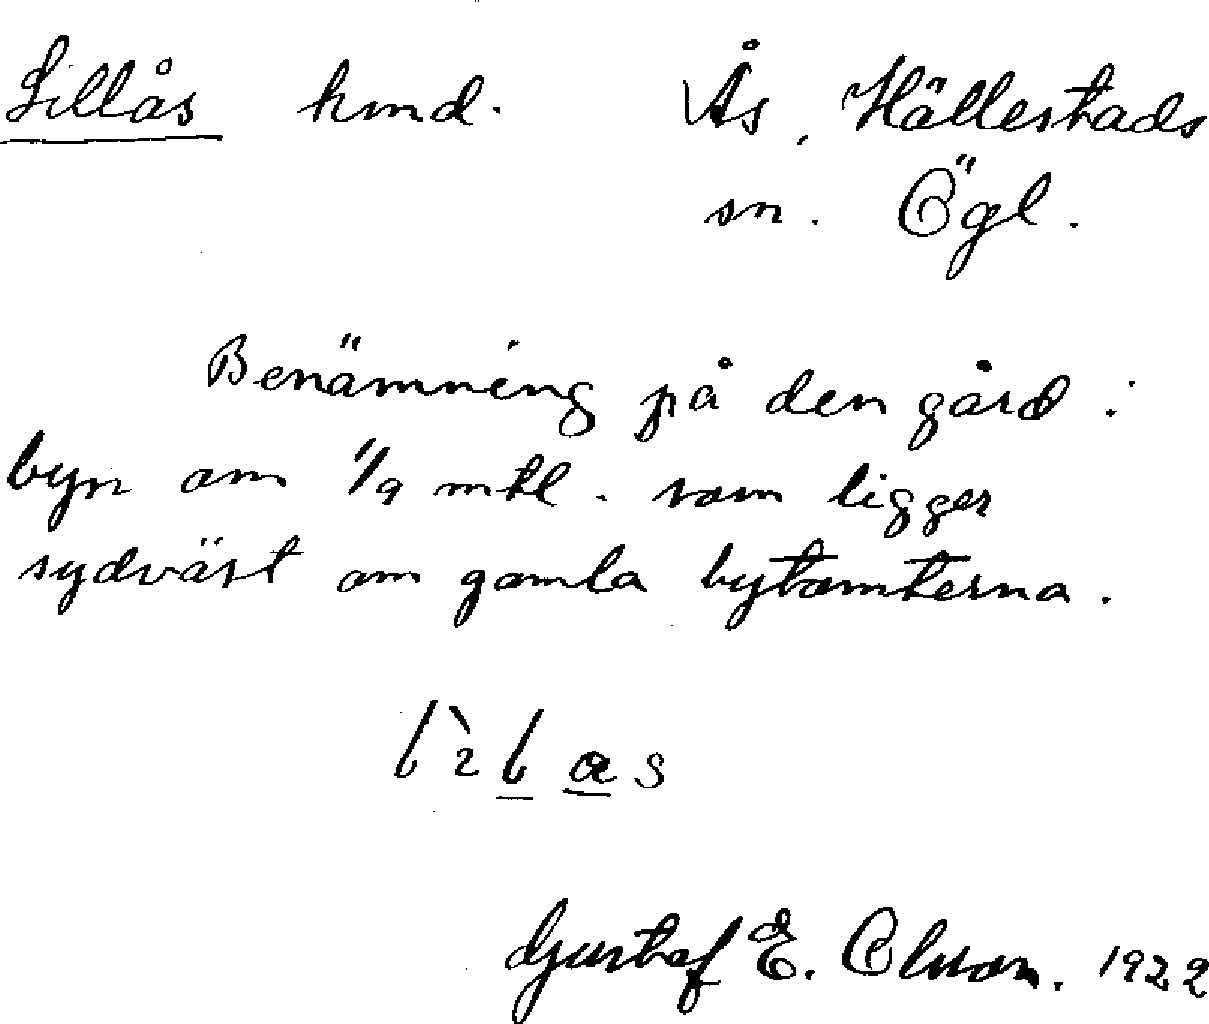 Lillås hmd. Ås, Hällestads
sn. Ögl.
Benämning på den gård i
byn om 1/9 mtl. som ligger
sydväst om gamla bytomterna.
Gustaf E. Olson. 1922